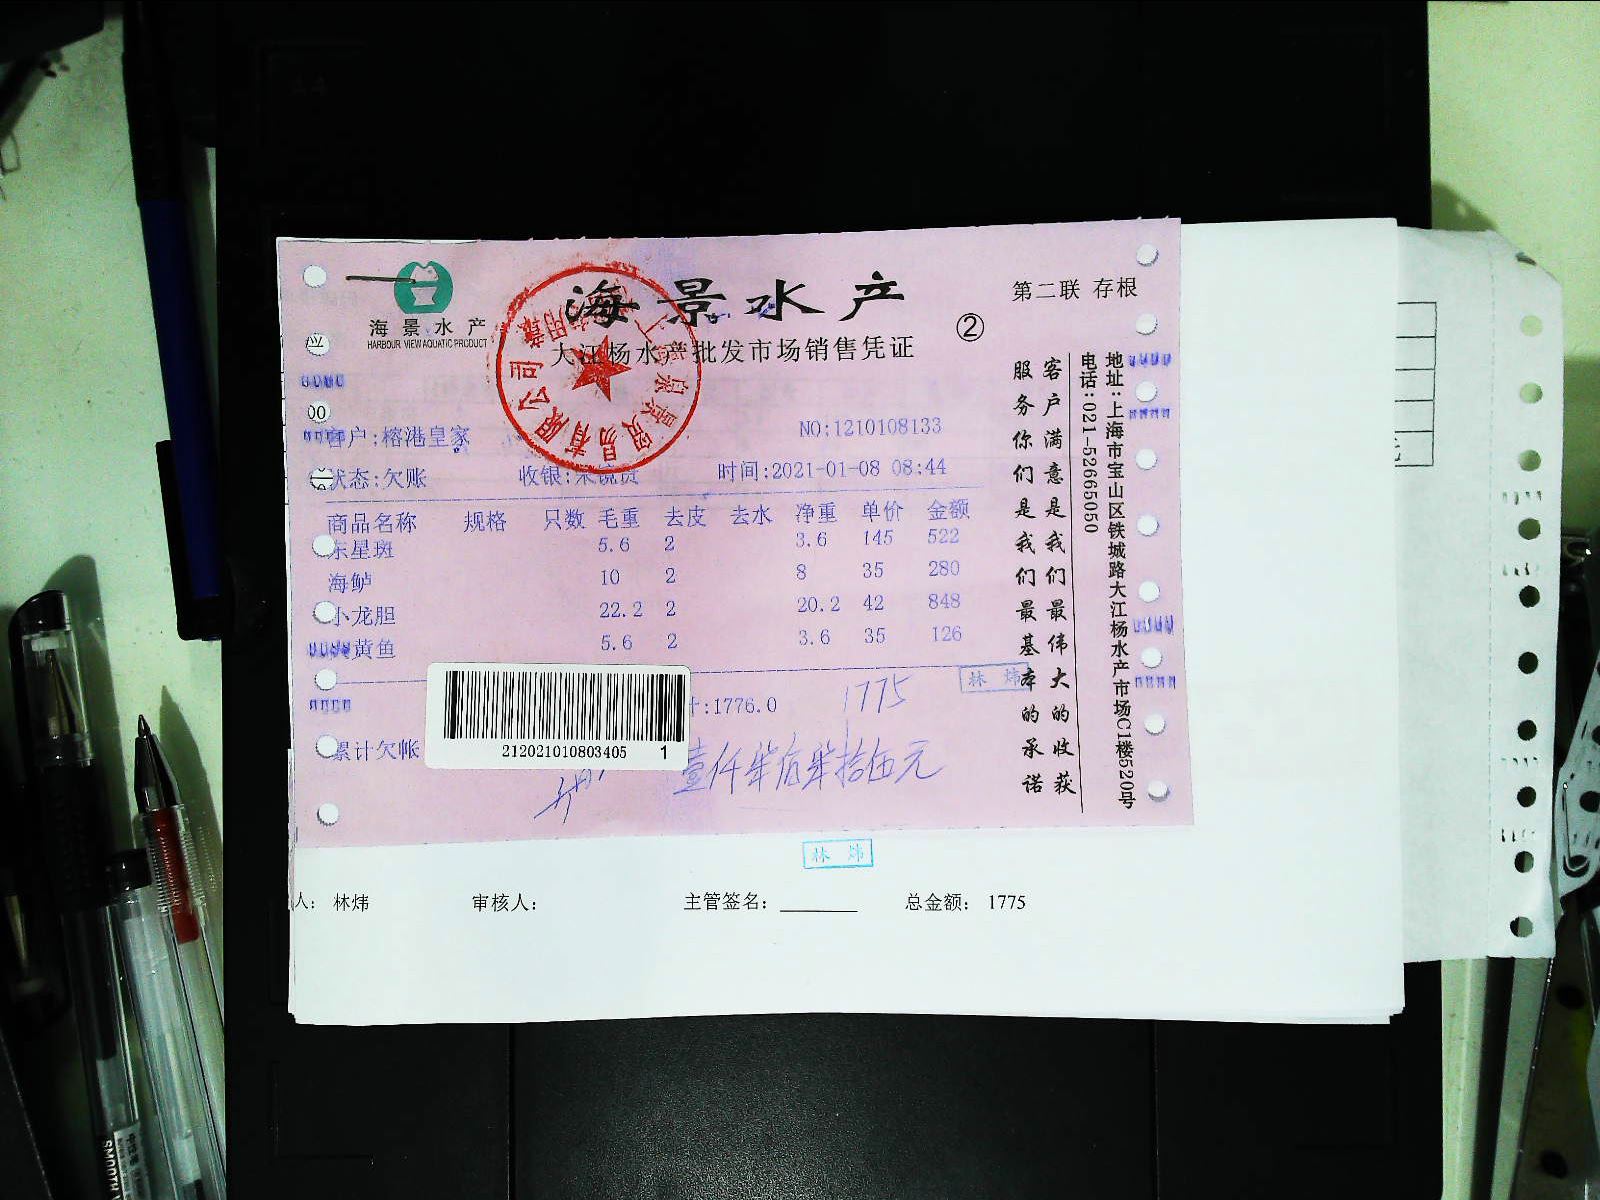 海景水产
HARBOUR VIEW AQUATIC PRODUCT
海景水产
大江杨水产批发市场销售凭证
②
第二联 存根
客户:榕港皇家
NO:1210108133
状态:欠账 收银: 时间:2021-01-08 08:44
商品名称 规格 只数 毛重 去皮 去水 净重 单价 金额
东星斑 5.6 2 3.6 145 522
海鲈 10 2 8 35 280
小龙胆 22.2 2 20.2 42 848
黄鱼 5.6 2 3.6 35 126
:1776.0
1775
林炜
累计欠帐
壹仟柒佰柒拾伍元
212021010803405 1
客户满意是我们最伟大的收获
服务你们是我们最基本的承诺
地址:上海市宝山区铁城路大江杨水产市场C1楼520号
电话:021-52665050
有限公司
林炜
人: 林炜 审核人: 主管签名: 总金额: 1775
SMOOTH